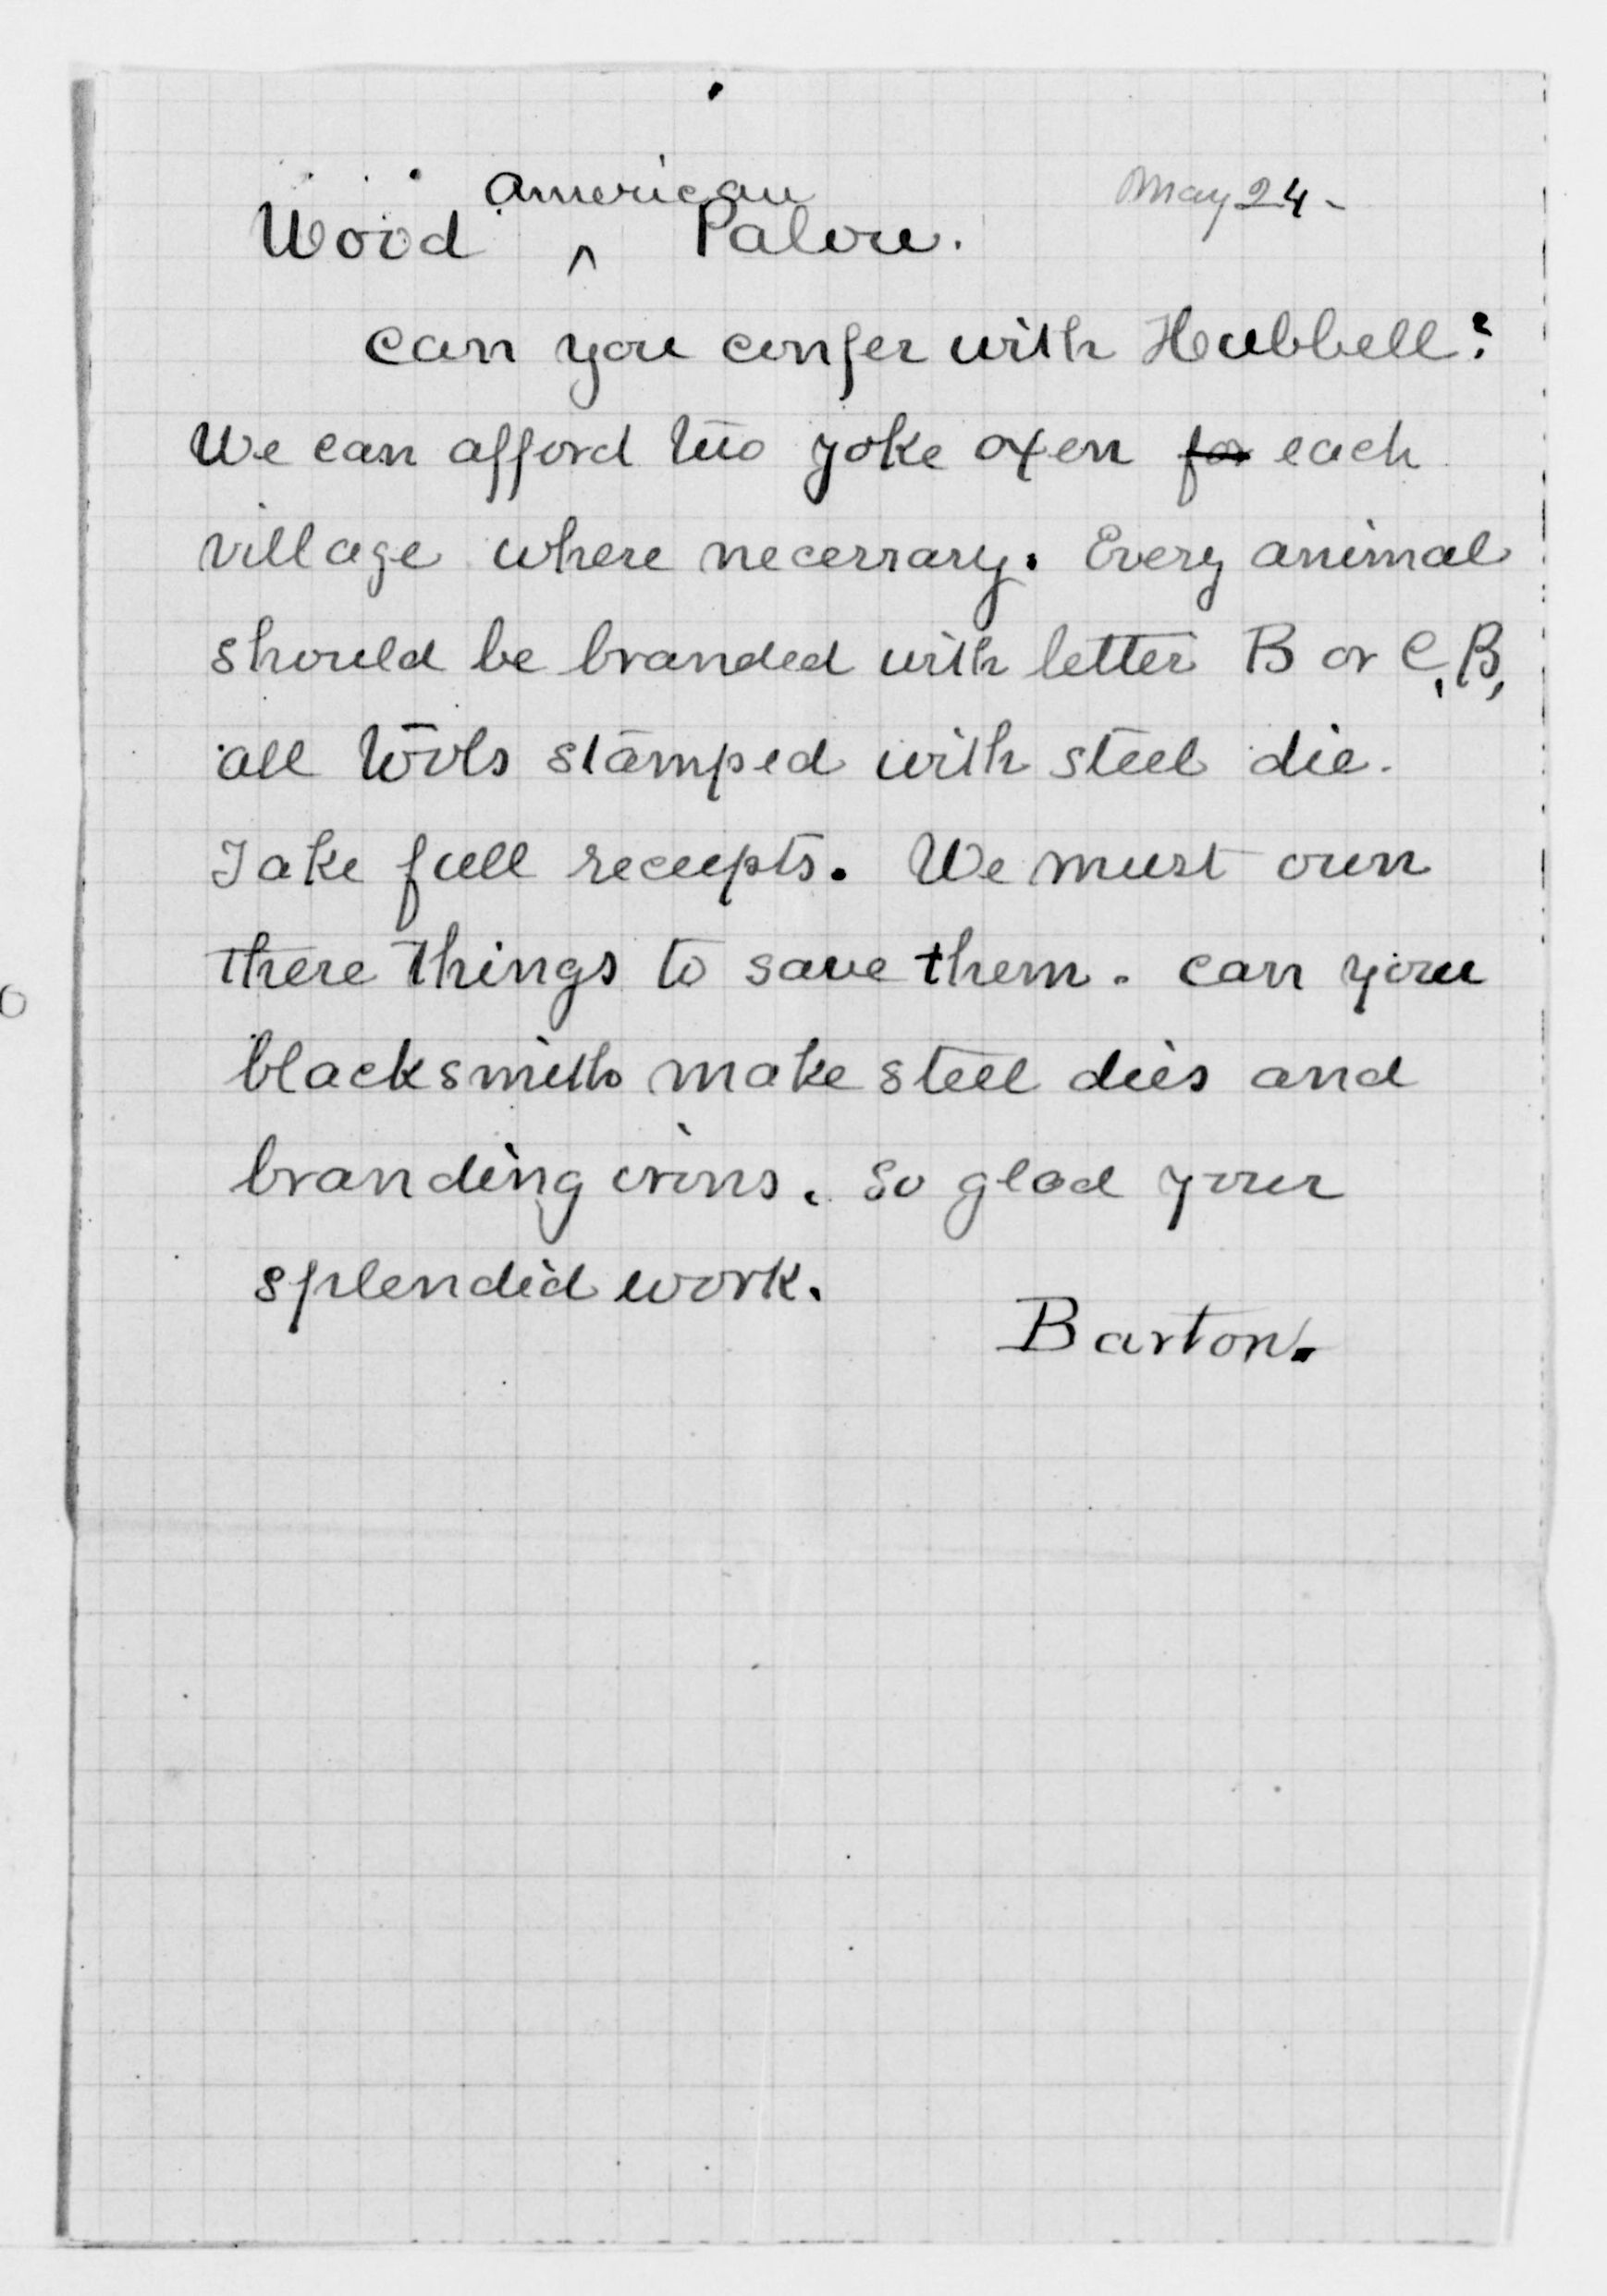 May 24-
american
Wood ^ Palou.
can you confer with Hubbell?
We can afford two yoke oxen for each
village where necessary. Every animal
should be branded with letter B or C.B,
all tools stamped with steel die.
Take full receipts. We must own
these things to save them. can your
blacksmiths make steel dies and
branding irons. so glad your
splendid work.
Barton.